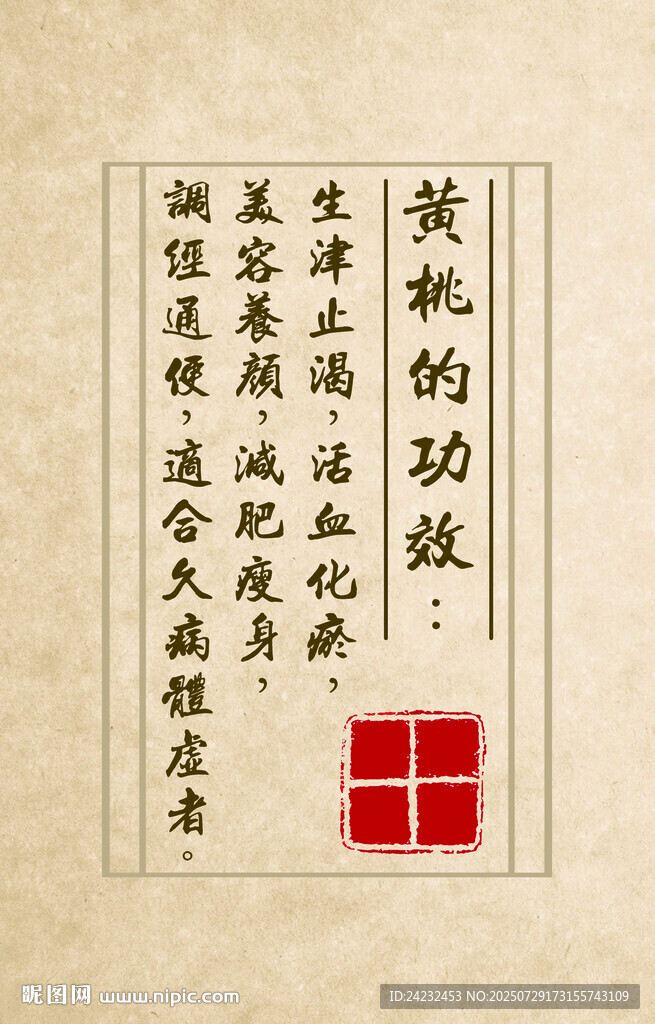 黄桃的功效：
生津止渴，活血化瘀，
美容養顔，減肥瘦身，
調經通便，適合久病體虛者。
昵图网 www.nipic.com
ID:24232453 NO:20250729173155743109